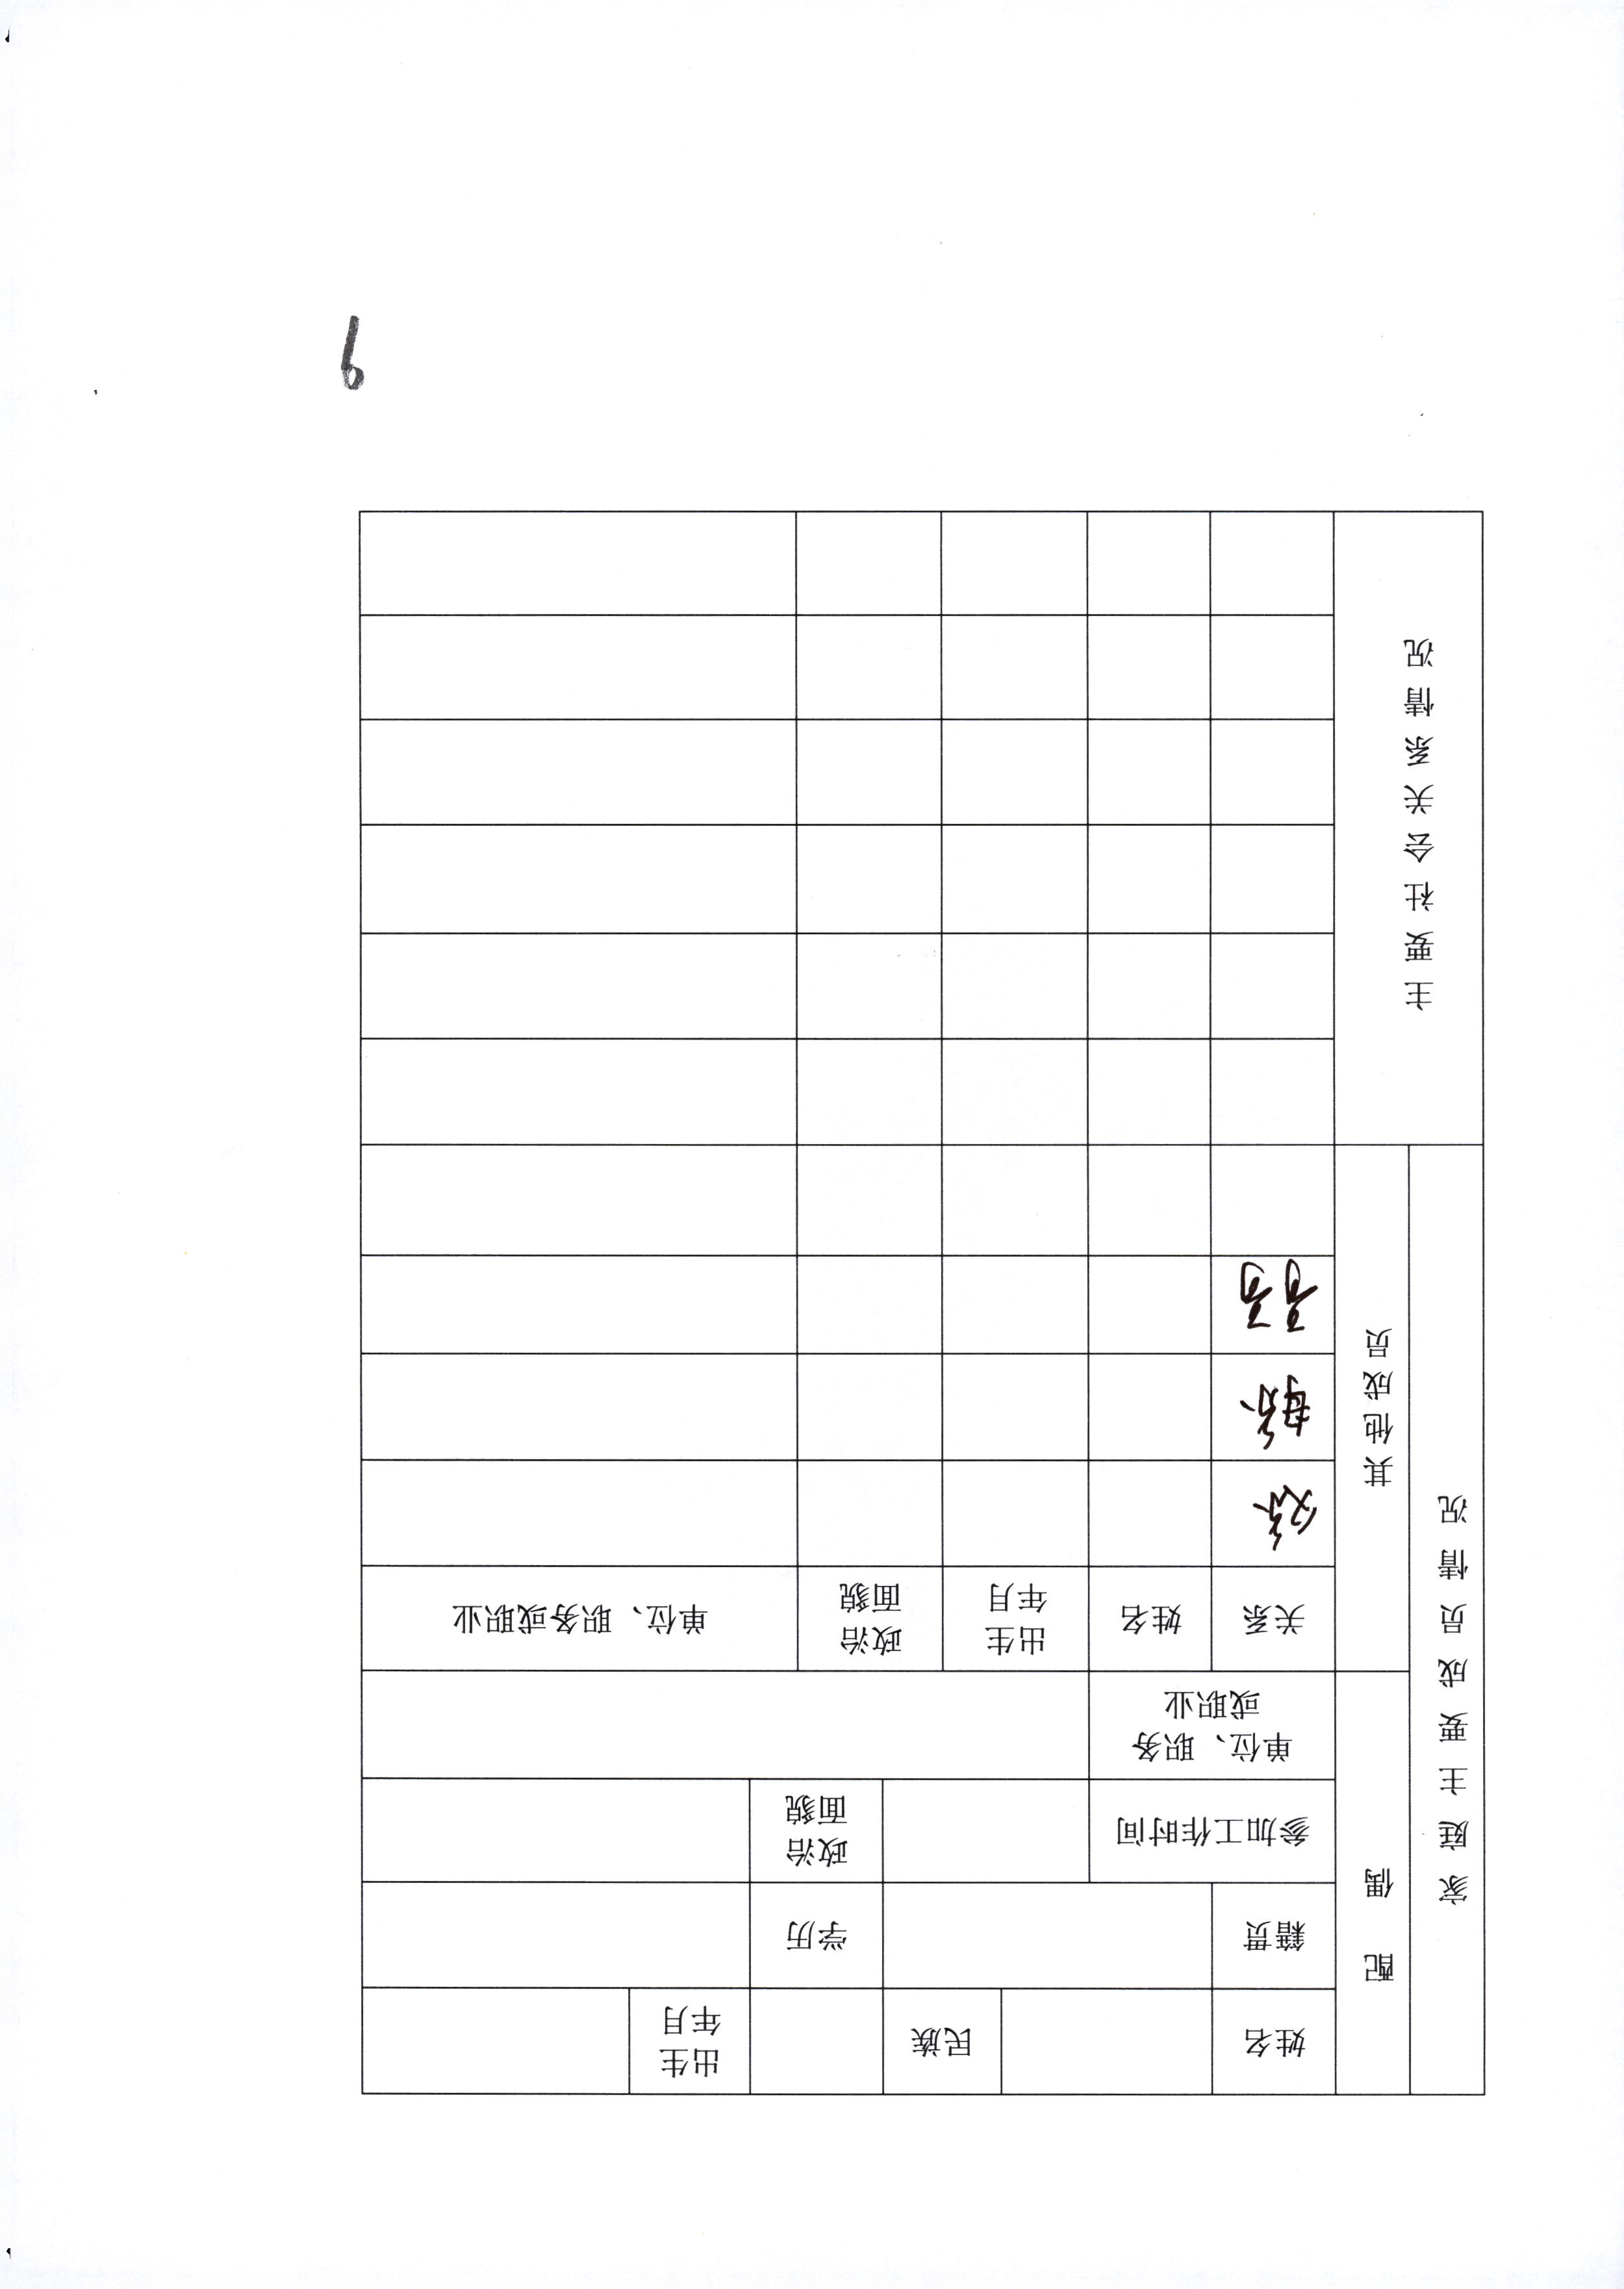 家庭主要成员情况
配偶
姓名
民族
出生
年月
籍贯
学历
参加工作时间
政治
面貌
单位、职务
或职业
其他成员
关系
姓名
出生
年月
政治
面貌
单位、职务或职业
父亲
母亲
哥哥
主要社会关系情况
9